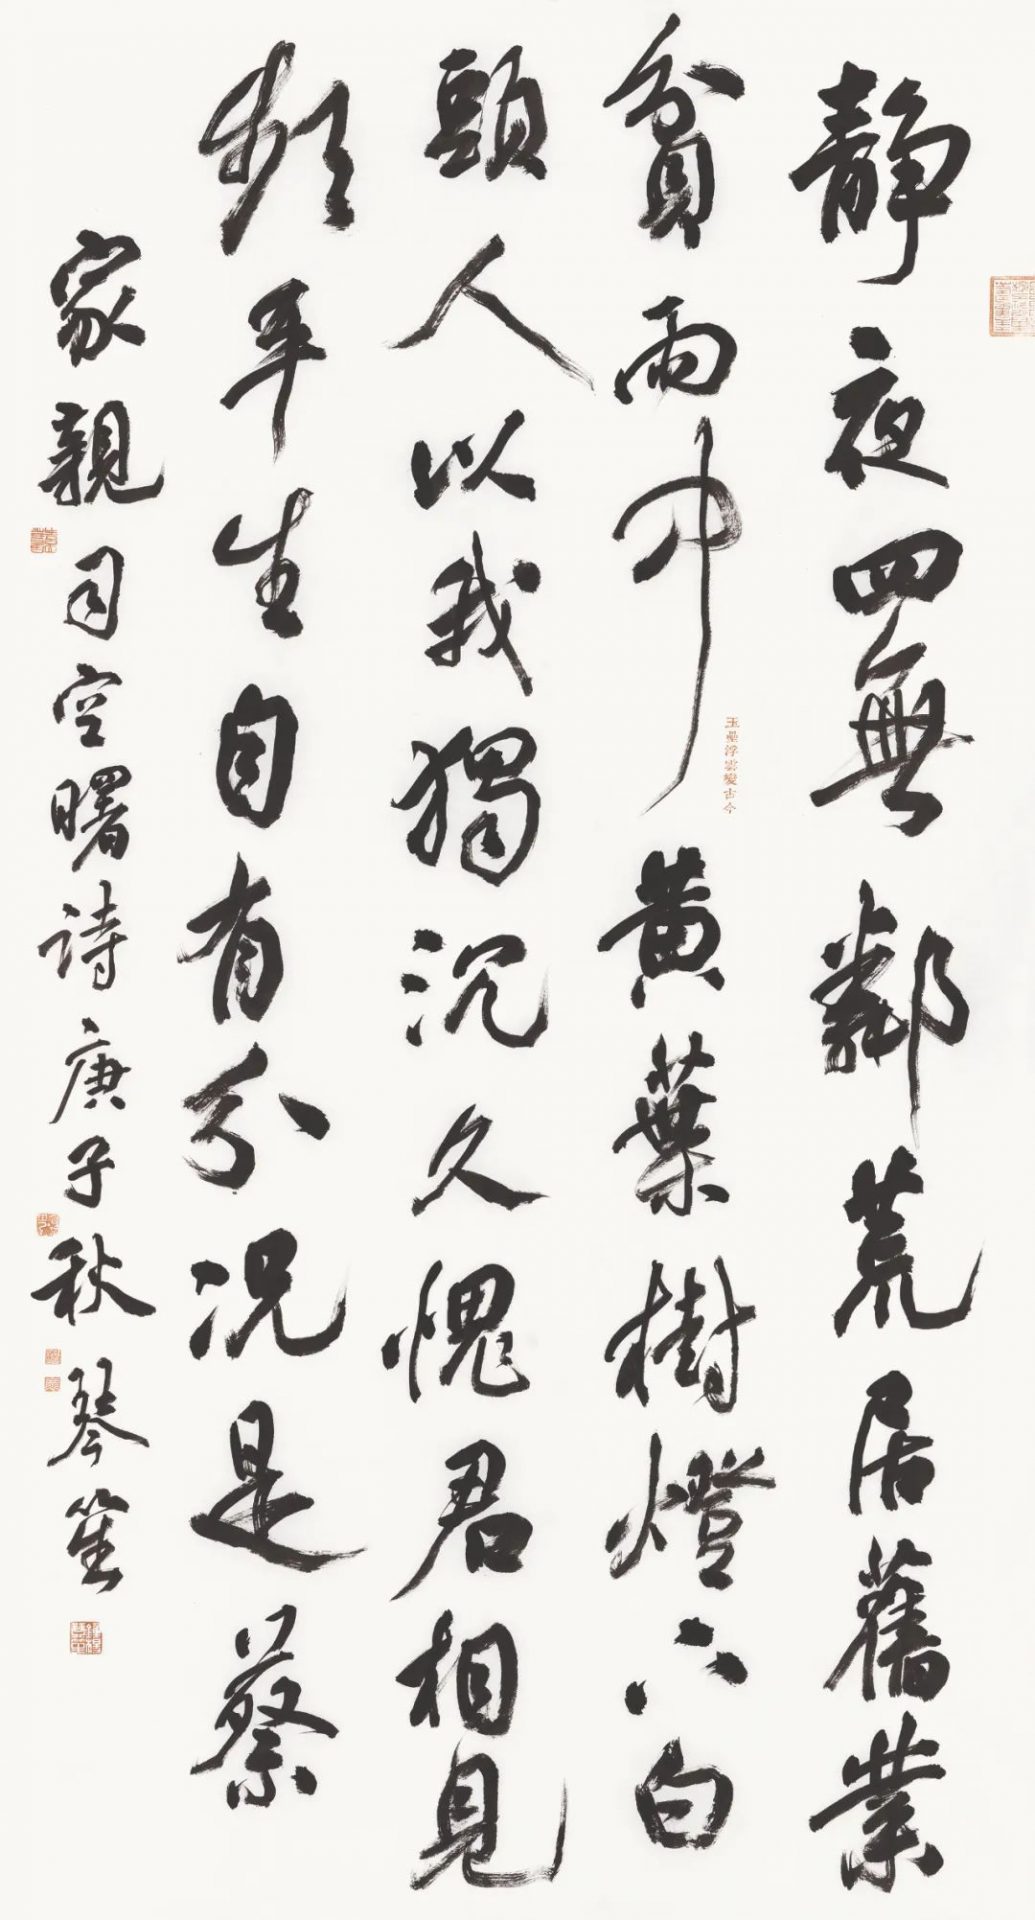 靜夜四無鄰荒居舊業
貧雨中黃葉樹燈下白
玉壘浮雲變古今
頭人以我獨沉久愧君相見
頻平生自有分况是蔡
家親 司空曙诗庚子秋琴笙